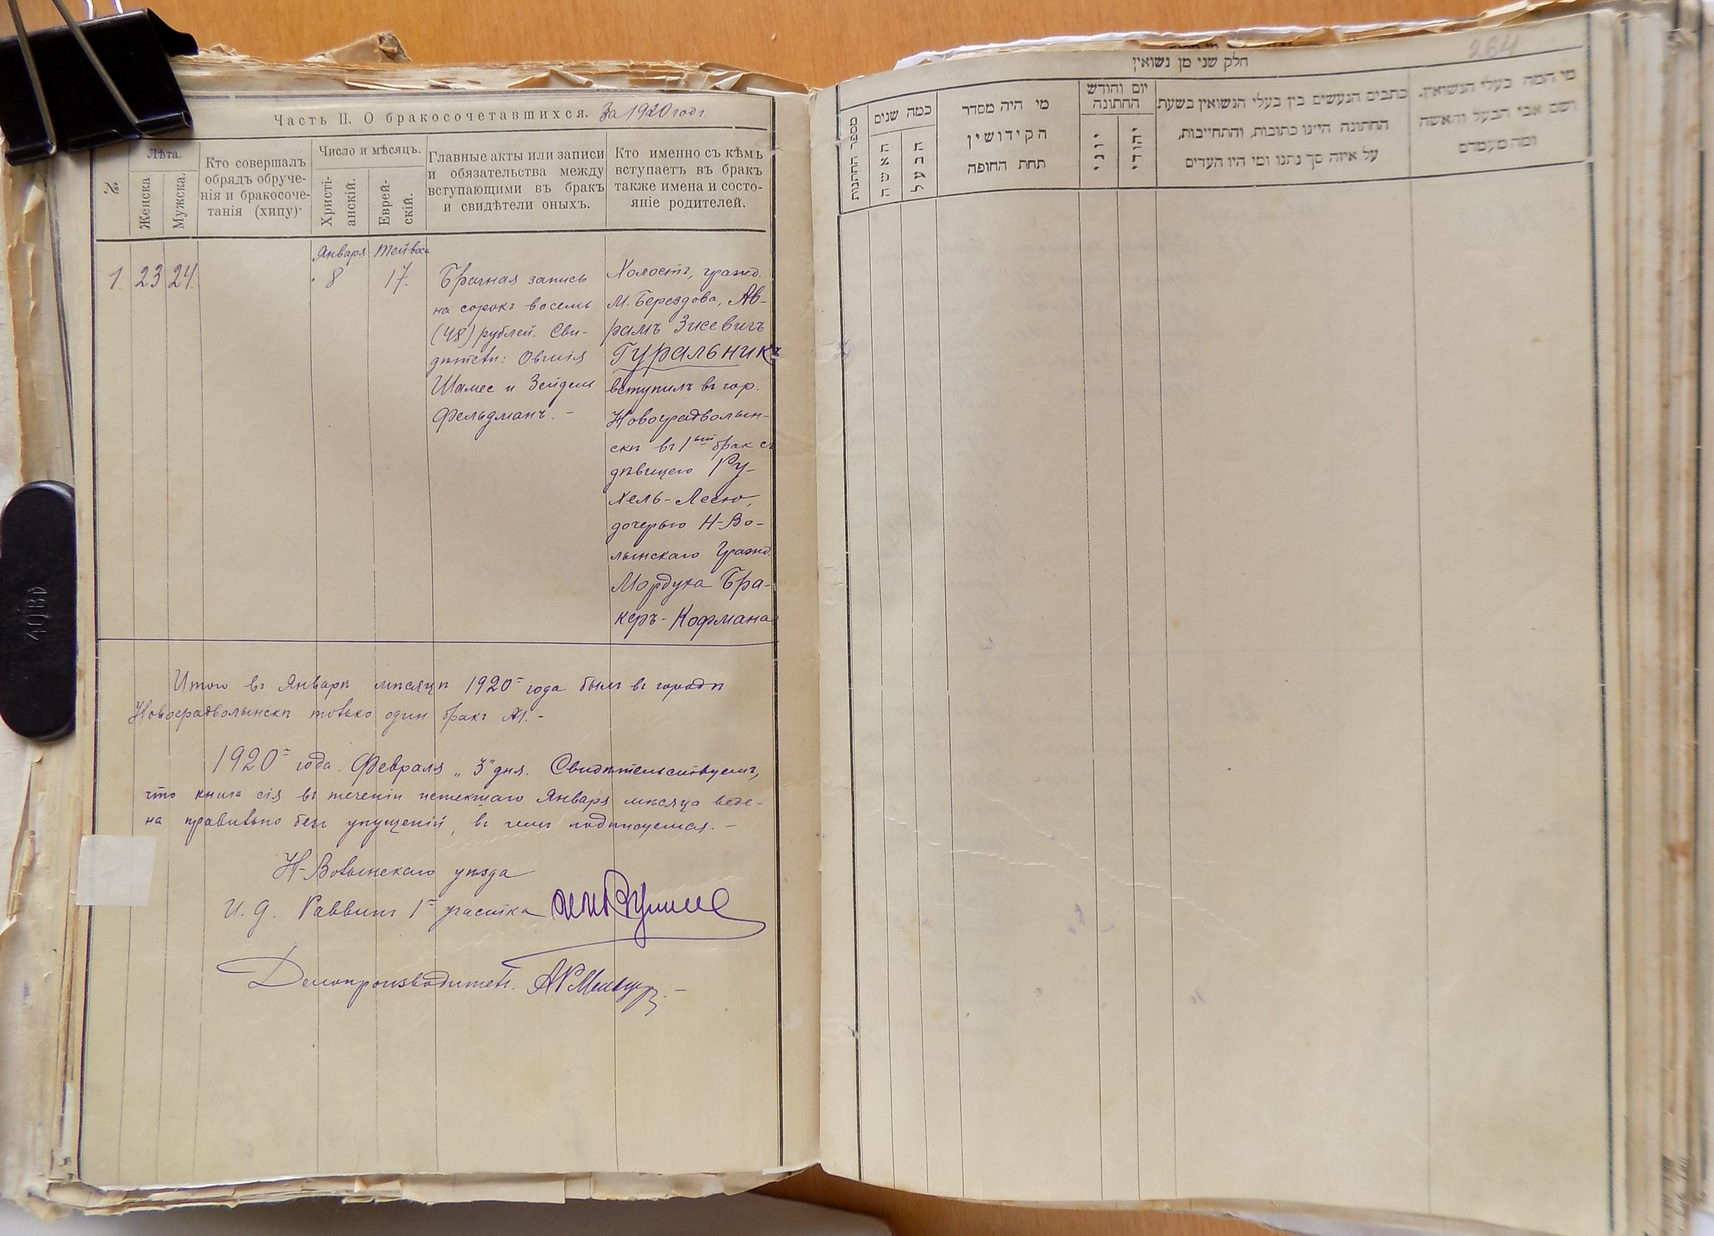 Часть II. О бракосочетавшихся. За 1920 годъ
№
Лѣта.
Женска.
Мужска.
Кто совершалъ
обрядъ обруче-
нія и бракосоче-
танія (хипу)·
Число и мѣсяцъ.
Христі-
анскій.
Еврей-
скій.
Главные акты или записи
и обязательства между
вступающими въ бракъ
и свидѣтели оныхъ.
Кто именно съ кѣмъ
вступаетъ въ бракъ
также имена и состо-
яніе родителей.
Января
1. 23 24.
8
17.
Брачная запись
на сорокъ восемь
(48) рублей. Сви-
дѣтели: Овшія
Шамес и Зейдель
Фельдманъ. -
Холостъ, гражд.
М. Берездова, Ав-
рамъ Зисевичъ
Гуральникъ
вступилъ въ гор.
Новоградволын-
скѣ въ 1ый брак съ
дѣвицею Ру-
хель-Леею,
дочерью Н-Во-
лынскаго гражд.
Мордуха Бра-
керъ-Кофмана
Итого въ Январѣ мѣсяцѣ 1920 года былъ въ городѣ
Новоградволынскѣ только один бракъ №1. -
1920 года Февраля „3" дня. Свидѣтельствуемъ,
что книга сія въ теченіи истекшаго Января мѣсяца веде-
на правильно безъ упущеній, въ чемъ подписуемся. -
Н-Волынскаго уѣзда
И. д. Раввинъ 1 участка
Делопроизводитель.
264
חלק שני מן נשואין
מספר החתנות
כמה שנים
האשה
הבעל
מי היה מסדר
הקידושין
תחת החופה
יום וחודש
החתונה
יוני
יהודי
כתבים הנעשים בין בעלי הנשואין בשעת
החתונה היינו כתובות, והתחייבות,
על איזה סך נתנו ומי היו העדים
מי המה בעלי הנשואין,
ושם אבי הבעל והאשה
ומה מעמדם